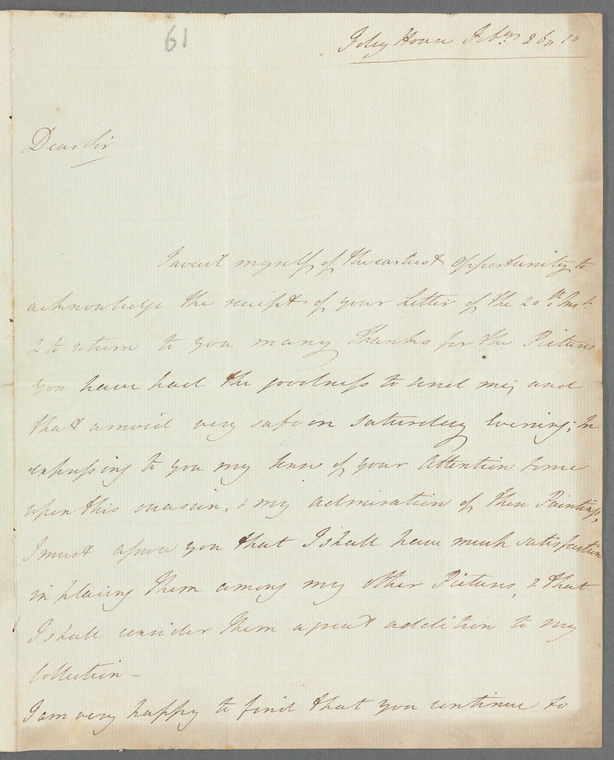 61
Foley House Feb.ry 26,, 10
Dear Sir
I avail myself of the earliest opportunity to
acknowledge the receipt of your Letter of the 20th Inst.
& to return to you many thanks for the Pictures
you have had the goodness to send me; and
that arrived very safe on Saturday Evening; In
expressing to you my sense of your Attention to me
upon this occasion, & my admiration of these Paintings,
I must assure you that I shall have much satisfaction
in placing them among my other Pictures, & that
I shall consider them a great addition to my
Collection -
I am very happy to find that you continue to